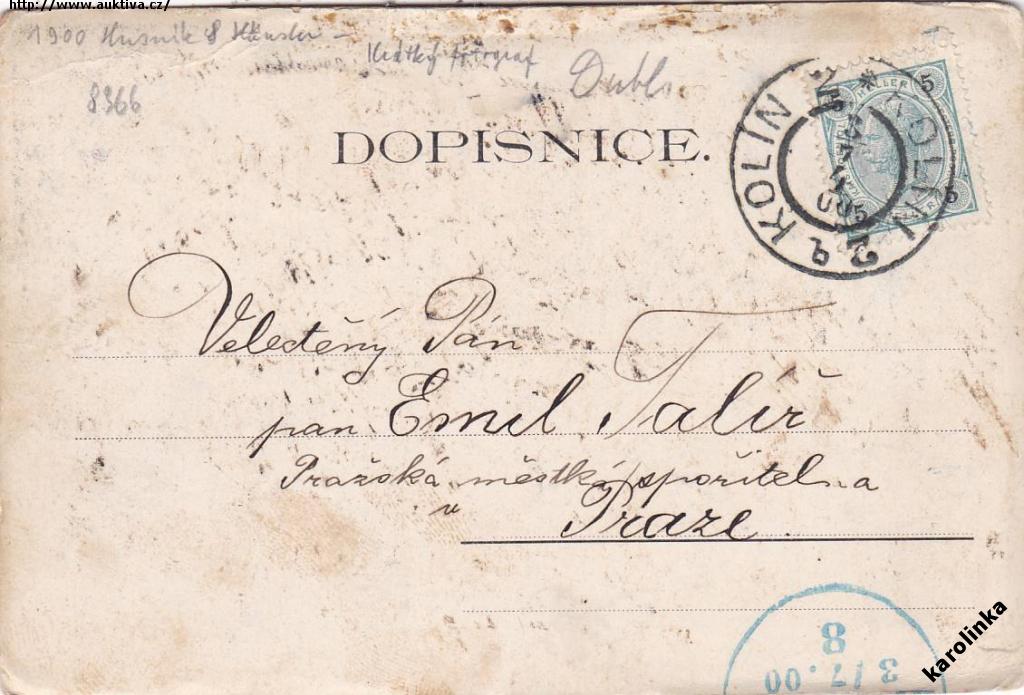 http://www.auktiva.cz/
1900 Husník & Häusler -
Krátký fotograf
8366
Dubl
DOPISNICE.
KOLÍN
5
5
Velectěný Pán
pan Emil Talíř
Pražská městká spořitelna
v Praze.
8
3/7.00
karolinka